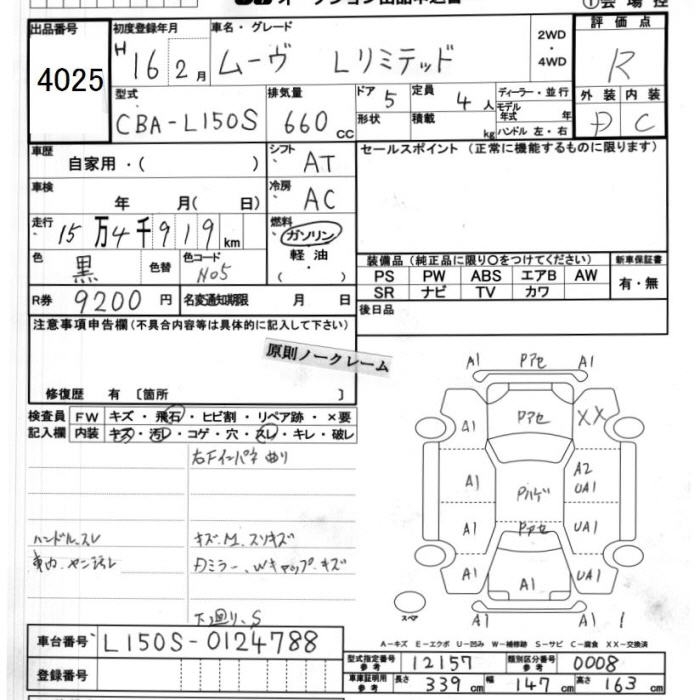 オークション出品申込書 ①会場控
出品番号 初度登録年月 車名・グレード 2WD・4WD 評価点
4025 H16 2月 ムーヴ Lリミテッド R
型式 排気量 ドア 5 定員 4人 ディーラー・並行 外装 内装
CBA-L150S 660cc 形状 積載 kg モデル年式 年 ハンドル 左・右 D C
車歴 自家用・( ) シフト AT セールスポイント(正常に機能するものに限ります)
車検 年 月( 日) 冷房 AC
走行 15万4千919km 燃料 ガソリン
色 黒 色替 色コード No5 軽油 ・ ( )
装備品(純正品に限り○をつけてください) 新車保証書
PS PW ABS エアB AW 有・無
SR ナビ TV カワ
R券 9200円 名変通知期限 月 日 後日品
注意事項申告欄(不具合内容等は具体的に記入して下さい)
原則ノークレーム
修復歴 有 〔箇所 〕
検査員 FW キズ・飛石・ヒビ割・リペア跡・×要
記入欄 内装 キズ・汚レ・コゲ・穴・スレ・キレ・破レ
右Fインパネ曲リ
ハンドル.スレ キズ.M.スリキズ
Dミラー、Wキャップ.キズ
下廻り.S
A1 Pアセ A1
A1 Pアセ XX
A1 A2
UA1
Pハゲ
A1 Pアセ UA1
A1 A1 UA1
A1 A1
スペア
A-キズ E-エクボ U-凹み W-補修跡 S-サビ C-腐食 XX-交換済
車台番号 L150S-0124788
型式指定番号 参考 12157 類別区分番号 参考 0008
登録番号 車庫証明用 参考 長さ 339cm 幅 147cm 高さ 163cm